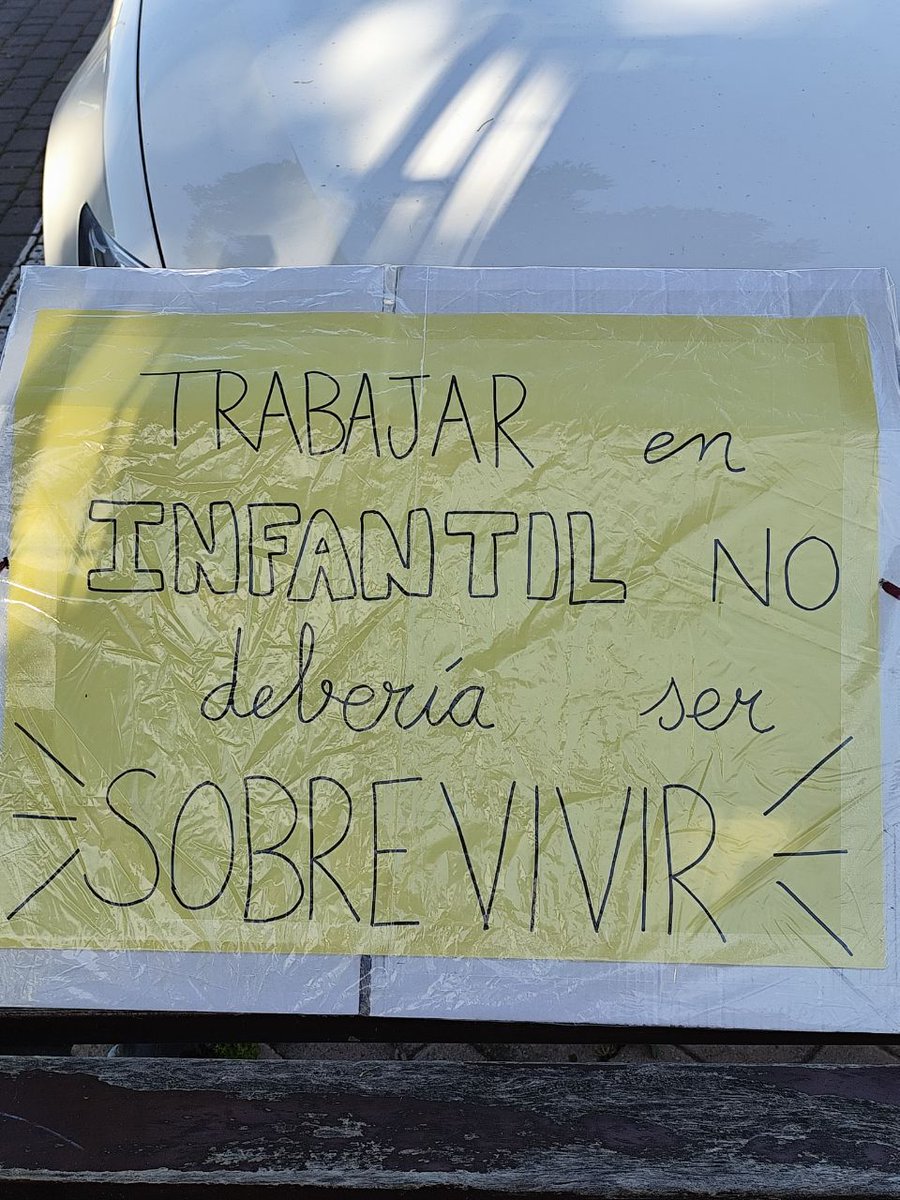 TRABAJAR en
INFANTIL NO
debería ser
SOBREVIVIR